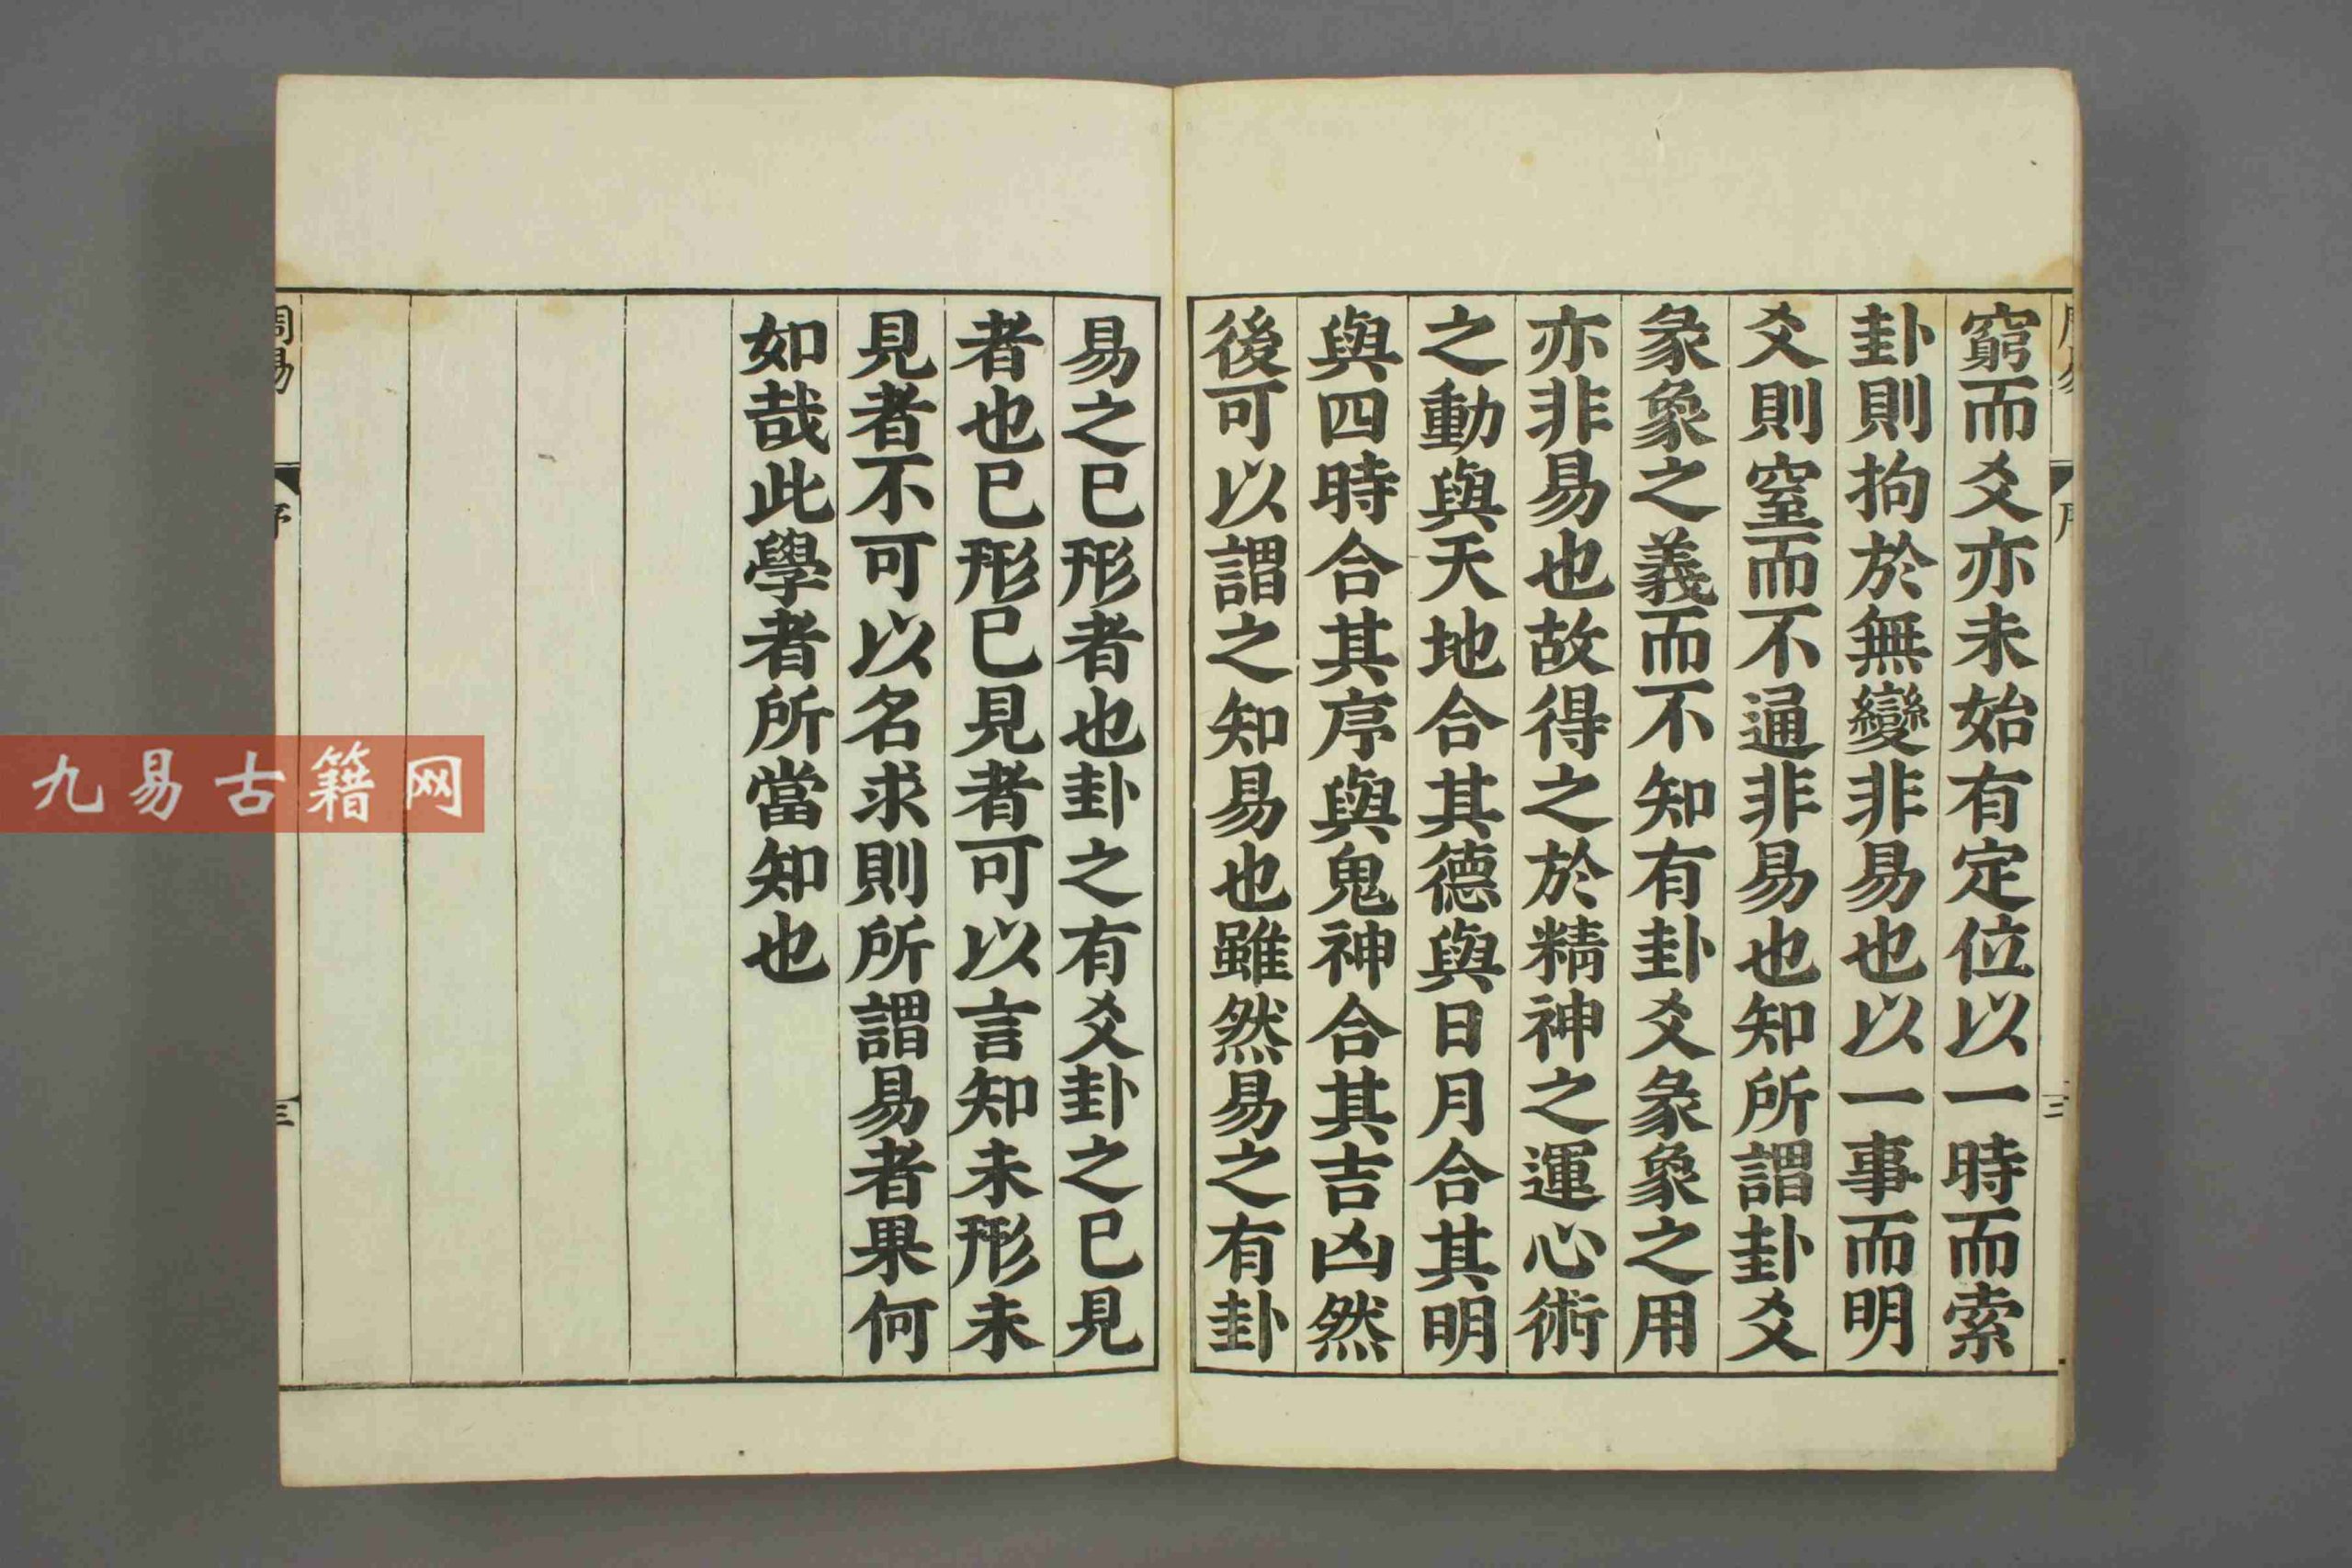 窮而爻亦未始有定位以一時而索
卦則拘於無變非易也以一事而明
爻則窒而不通非易也知所謂卦爻
彖象之義而不知有卦爻彖象之用
亦非易也故得之於精神之運心術
之動與天地合其德與日月合其明
與四時合其序與鬼神合其吉凶然
後可以謂之知易也雖然易之有卦
易之已形者也卦之有爻卦之已見
者也已形已見者可以言知未形未
見者不可以名求則所謂易者果何
如哉此學者所當知也
周易
序
三
九易古籍网